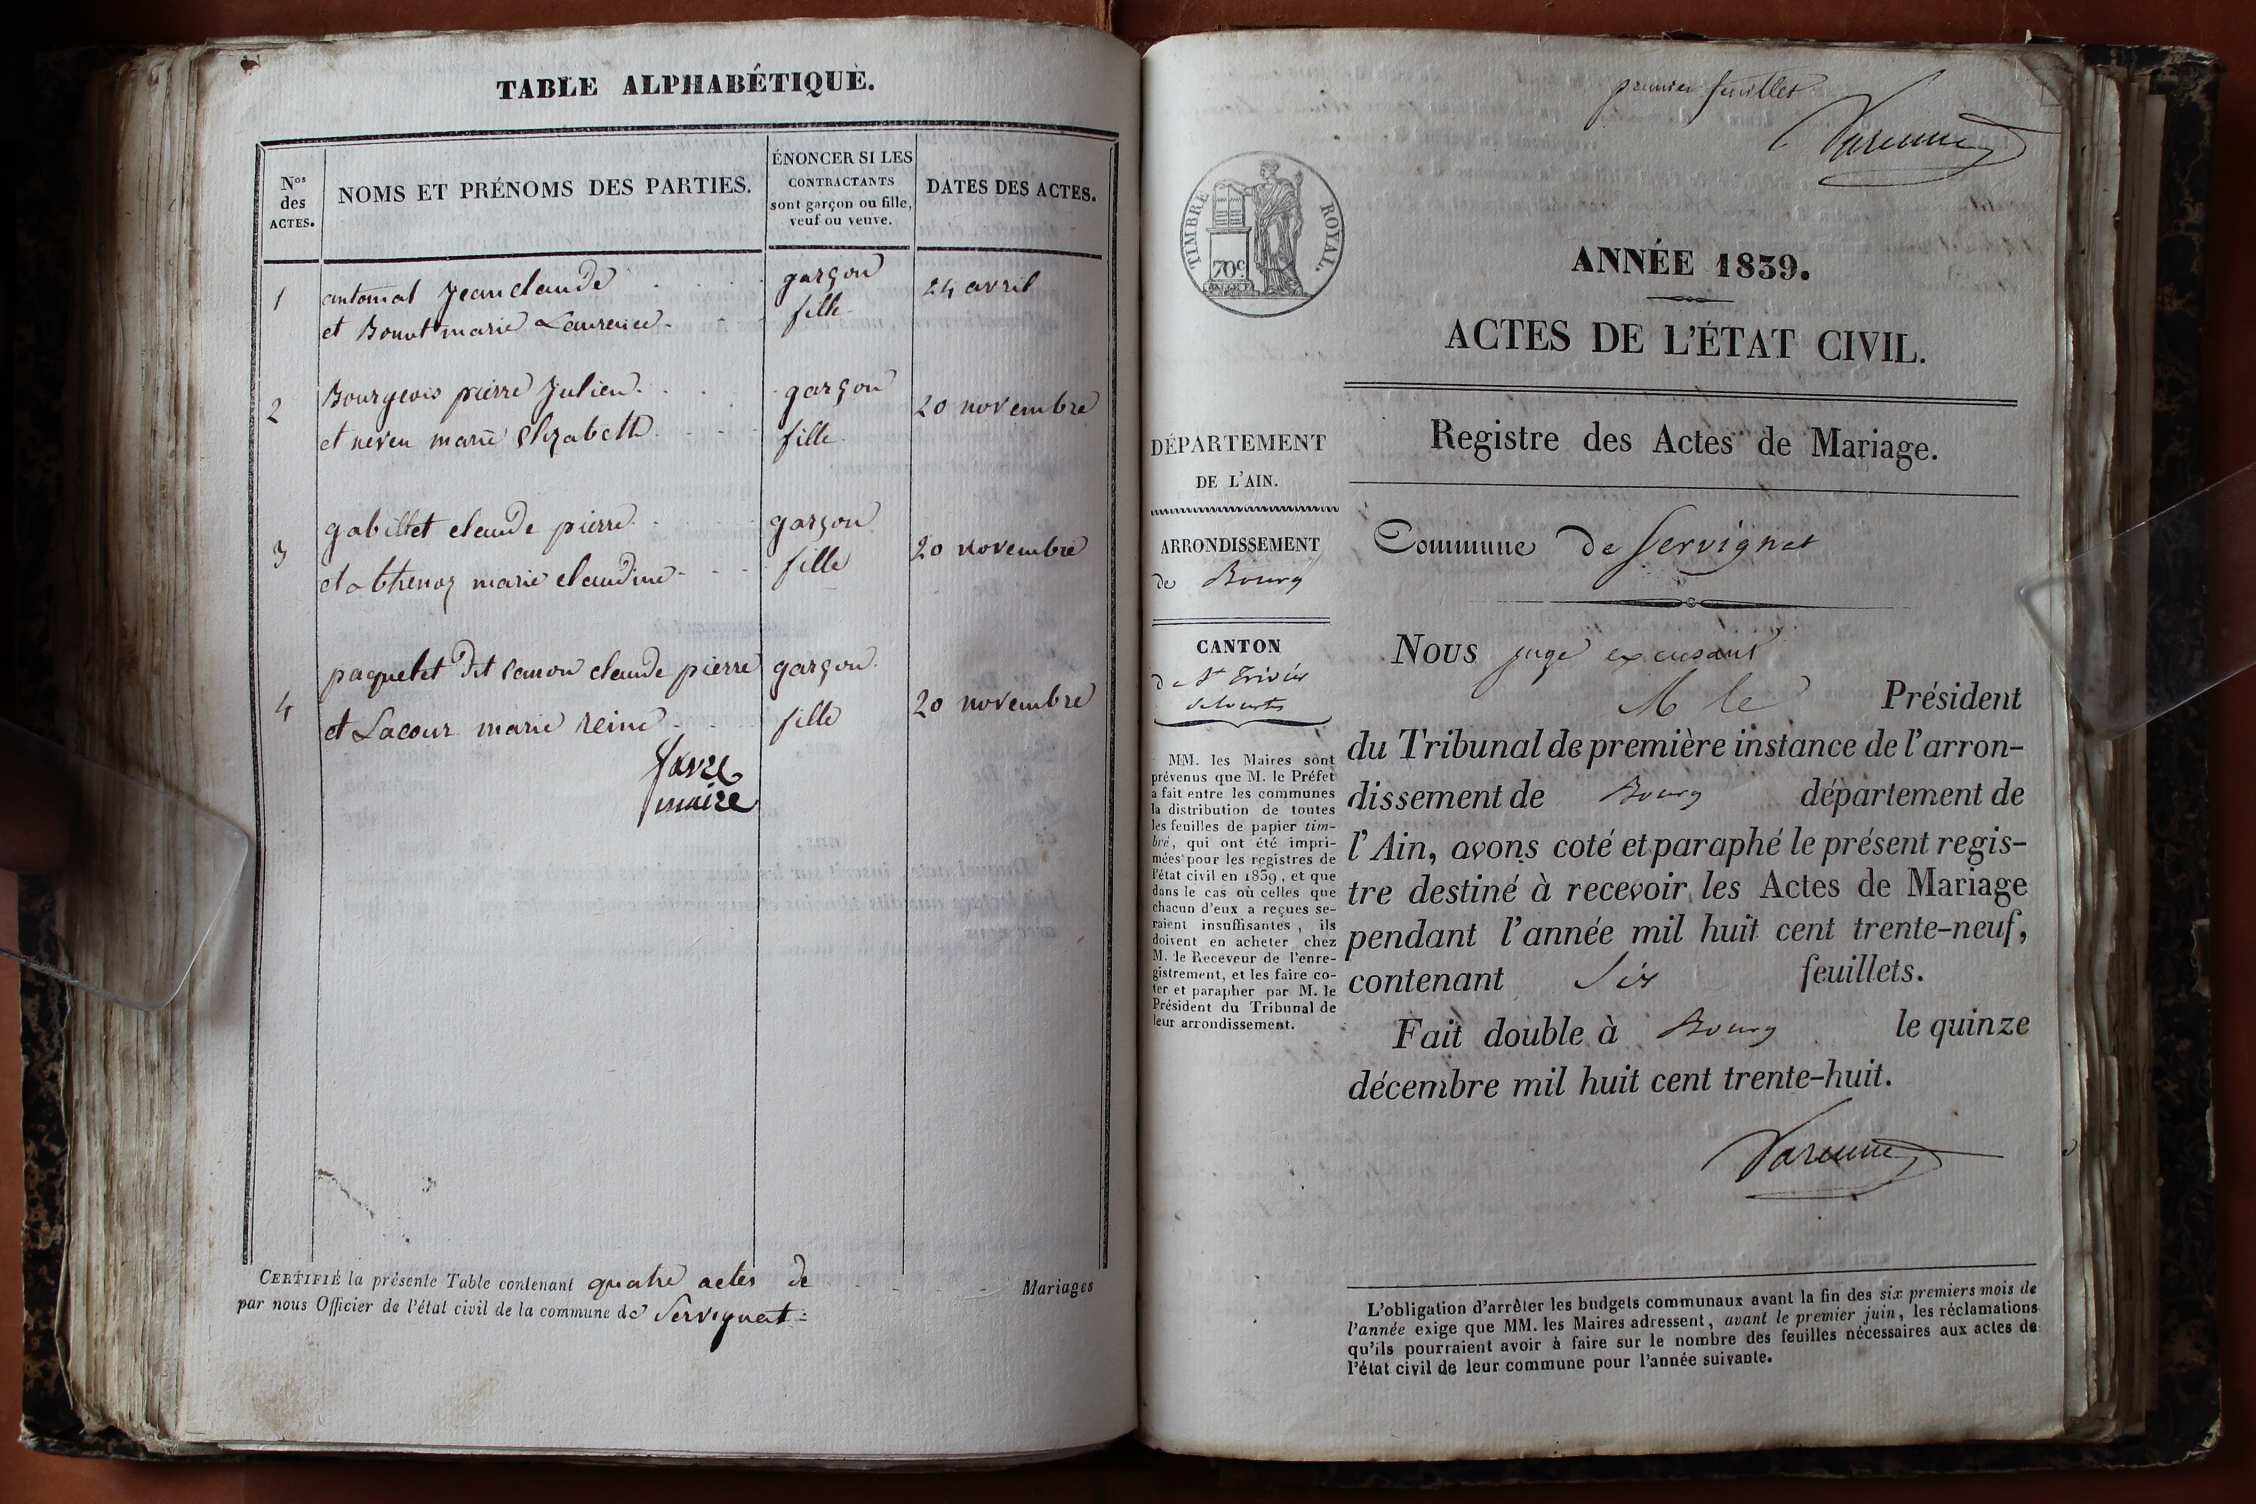 TABLE ALPHABÉTIQUE.
Nos des ACTES.
NOMS ET PRÉNOMS DES PARTIES.
ÉNONCER SI LES
CONTRACTANTS
sont garçon ou fille,
veuf ou veuve.
DATES DES ACTES.
1 antomat Jean claude garçon 24 avril
et Bouvt marie Laurence fille
2 Bourgeois pierre Julien garçon 20 novembre
et neveu marie Elizabeth fille
3 gabillet claude pierre garçon 20 novembre
et athenoz marie claudine fille
4 paquelet dit canon claude pierre garçon 20 novembre
et Lacour marie reine fille
favre
maire
CERTIFIÉ la présente Table contenant quatre actes de Mariages
par nous Officier de l'état civil de la commune de Servignat
premier feuillet
Varenne
TIMBRE ROYAL.
70c.
ANNÉE 1839.
ACTES DE L'ÉTAT CIVIL.
Registre des Actes de Mariage.
DÉPARTEMENT
DE L'AIN.
ARRONDISSEMENT
de Bourg
CANTON
de St Trivier
de Courtes
MM. les Maires sont
prévenus que M. le Préfet
a fait entre les communes
la distribution de toutes
les feuilles de papier tim-
bré, qui ont été impri-
mées pour les registres de
l'état civil en 1839, et que
dans le cas où celles que
chacun d'eux a reçues se-
raient insuffisantes, ils
doivent en acheter chez
M. le Receveur de l'enre-
gistrement, et les faire co-
ter et parapher par M. le
Président du Tribunal de
leur arrondissement.
Commune de Servignat
Nous juge excusant
M le Président
du Tribunal de première instance de l'arron-
dissement de Bourg département de
l'Ain, avons coté et paraphé le présent regis-
tre destiné à recevoir les Actes de Mariage
pendant l'année mil huit cent trente-neuf,
contenant Six feuillets.
Fait double à Bourg le quinze
décembre mil huit cent trente-huit.
Varenne
L'obligation d'arrêter les budgets communaux avant la fin des six premiers mois de
l'année exige que MM. les Maires adressent, avant le premier juin, les réclamations
qu'ils pourraient avoir à faire sur le nombre des feuilles nécessaires aux actes de
l'état civil de leur commune pour l'année suivante.